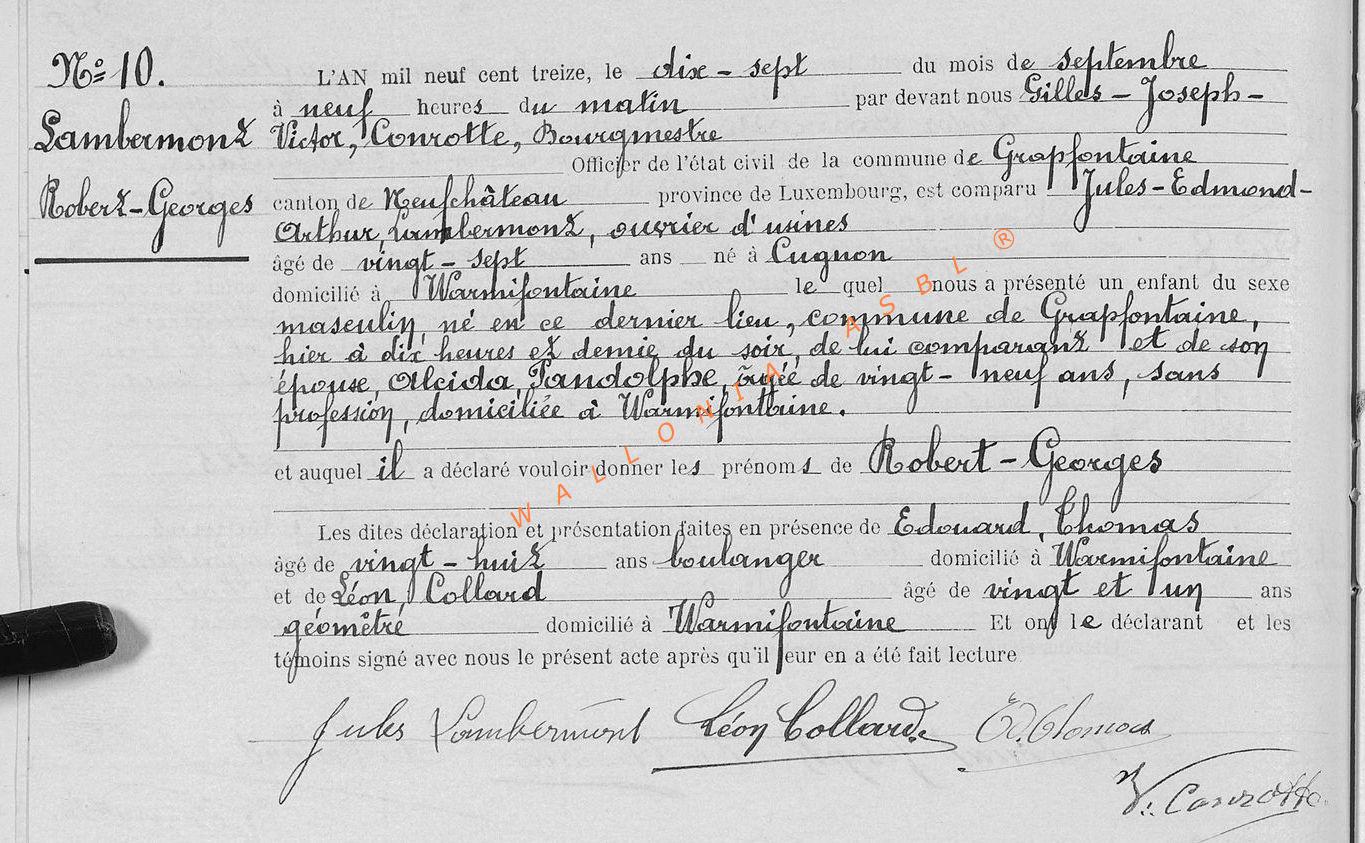 N° 10.
Lambermont
Robert-Georges
L'AN mil neuf cent treize, le dix-sept du mois de septembre
à neuf heures du matin par devant nous Gilles-Joseph-
Victor, Conrotte, Bourgmestre
Officier de l'état civil de la commune de Grapfontaine
canton de Neufchâteau province de Luxembourg, est comparu Jules-Edmond-
Arthur, Lambermont, ouvrier d'usines
âgé de vingt-sept ans né à Cugnon
domicilié à Warmifontaine lequel nous a présenté un enfant du sexe
masculin, né en ce dernier lieu, commune de Grapfontaine,
hier à dix heures et demie du soir, de lui comparant et de son
épouse, Alcida, Pandolphe, âgée de vingt-neuf ans, sans
profession, domiciliée à Warmifontaine.
et auquel il a déclaré vouloir donner les prénoms de Robert-Georges
Les dites déclaration et présentation faites en présence de Edouard, Thomas
âgé de vingt-huit ans boulanger domicilié à Warmifontaine
et de Léon, Collard âgé de vingt et un ans
géomètre domicilié à Warmifontaine Et ont le déclarant et les
témoins signé avec nous le présent acte après qu'il leur en a été fait lecture
Jules Lambermont Léon Collard. Ed. Thomas
V. Conrotte
WALLONIA ASBL ®